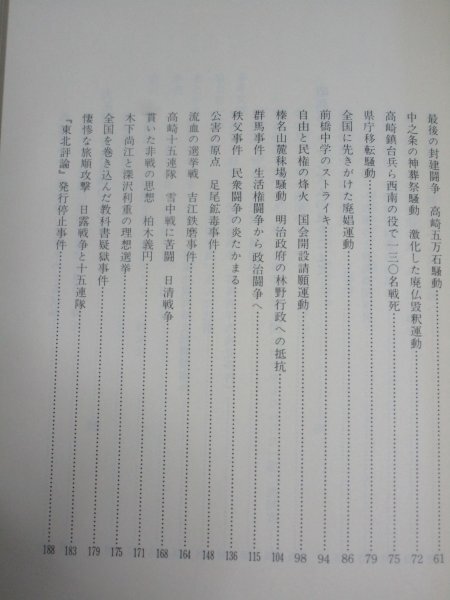 最後の封建闘争 高崎五万石騒動………61
中之条の神葬祭騒動 激化した廃仏毀釈運動………72
高崎鎮台兵ら西南の役で一三〇名戦死………75
県庁移転騒動………79
全国に先きがけた廃娼運動………86
前橋中学のストライキ………94
自由と民権の烽火 国会開設請願運動………98
榛名山麓秣場騒動 明治政府の林野行政への抵抗………104
群馬事件 生活権闘争から政治闘争へ………115
秩父事件 民衆闘争の炎たかまる………136
公害の原点 足尾鉱毒事件………148
流血の選挙戦 吉江鉄磨事件………164
高崎十五連隊 雪中戦に苦闘 日清戦争………168
貫いた非戦の思想 柏木義円………171
木下尚江と深沢利重の理想選挙………175
全国を巻き込んだ教科書疑獄事件………179
悽惨な旅順攻撃 日露戦争と十五連隊………183
『東北評論』発行停止事件………188